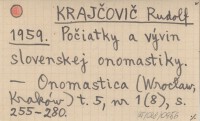 KRAJČOVIČ Rudolf
1959. Počiatky a vývin
slovenskej onomastiky.
— Onomastica (Wrocław,
Kraków) t. 5, nr 1(8), s.
255-280.